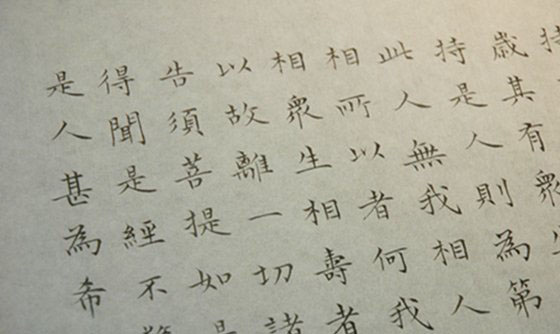 持
歲其有眾生
持是人則為第
此人無我相人
相所以者何我
相眾生相壽者
以故離一切諸
告須菩提如是
得聞是經不驚
是人甚為希